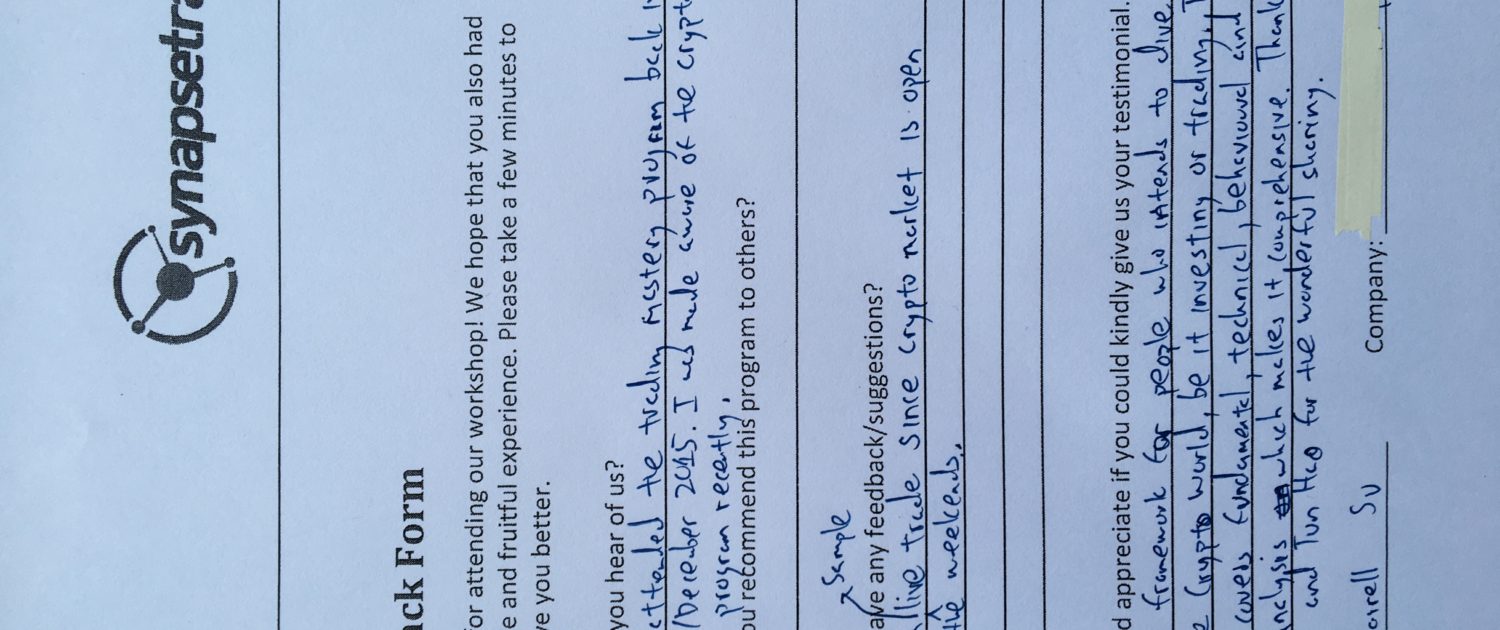 synapsetra
ack Form
or attending our workshop! We hope that you also had
e and fruitful experience. Please take a few minutes to
ve you better.
you hear of us?
attended the trading mastery program back i
/December 2015. I was made aware of the crypt
program recently.
ou recommend this program to others?
Sample
ave any feedback/suggestions?
live trade since crypto market is open
the weekends.
d appreciate if you could kindly give us your testimonial.
framework for people who intends to dive
e crypto world, be it investing or trading.
covers fundamental, technical, behavioural and
analysis which makes it comprehensive. Thank
and Tun Hao for the wonderful sharing.
arell Su
Company: